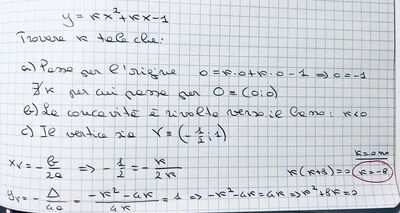 y = kx² + kx - 1
Trovare k tale che:
a) Passa per l'origine 0 = k·0 + k·0 - 1 ⇒ 0 = -1
∄ k per cui passa per O = (0;0)
b) La concavità è rivolta verso il basso: k<0
c) Il vertice sia V = (-1/2; 1)
k = 0 no
x_V = -b/2a ⇒ -1/2 = -k/2k k(k+8)=0 k=-8
y_V = -Δ/4a = (-k² - 4k)/4k = 1 ⇒ -k² - 4k = 4k ⇒ k² + 8k = 0